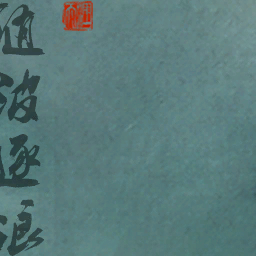 随波逐浪